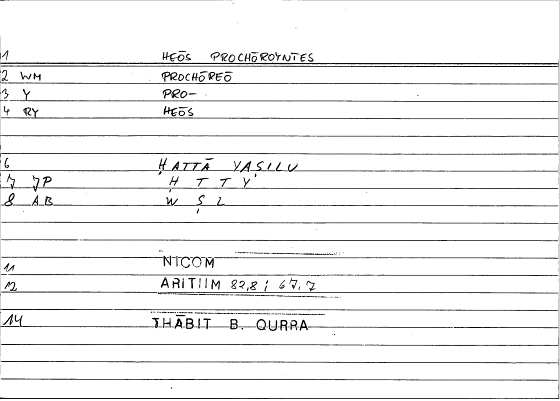 1 HEŌS PROCHŌROYNTES
2 WM PROCHŌREŌ
3 Y PRO-
4 RY HEŌS
6 ḤATTĀ YAṢILU
7 JP Ḥ T T Y
8 AB W Ṣ L
11 NICOM
12 ARITIIM 82,8; 67,7
14 THĀBIT B. QURRA